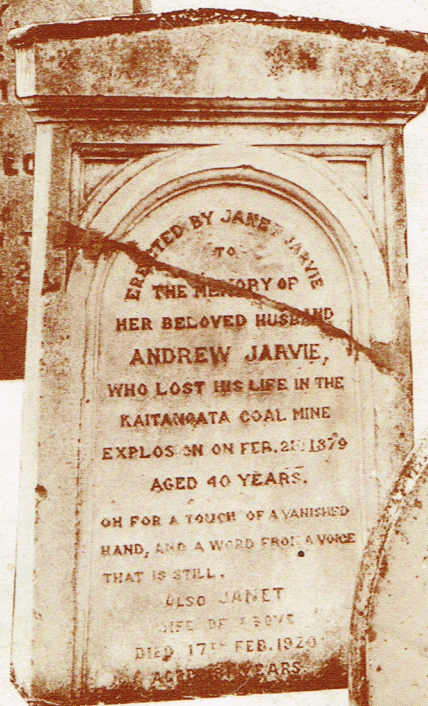 ERECTED BY JANET JARVIE
TO
THE MEMORY OF
HER BELOVED HUSBAND
ANDREW JARVIE,
WHO LOST HIS LIFE IN THE
KAITANGATA COAL MINE
EXPLOSION ON FEB. 21ST 1879
AGED 40 YEARS.
OH FOR A TOUCH OF A VANISHED
HAND, AND A WORD FROM A VOICE
THAT IS STILL.
ALSO JANET
WIFE OF ABOVE
DIED 17TH FEB. 1920
AGED YEARS